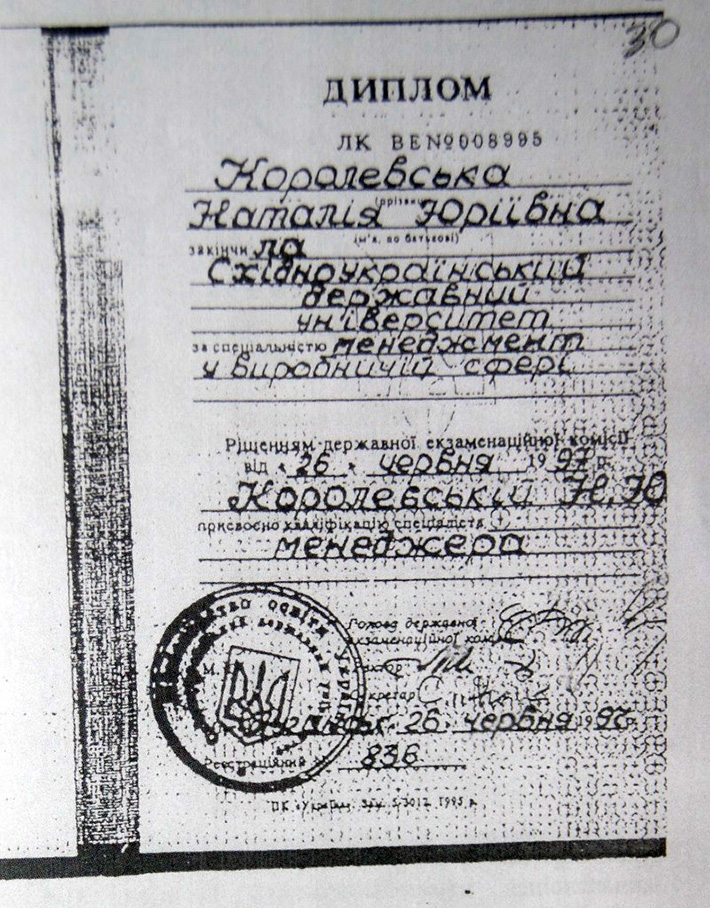 30
ДИПЛОМ
ЛК ВЕ№008995
Королевська
(прізвище)
Наталія Юріївна
(ім'я, по батькові)
закінчила
Східноукраїнський
державний
університет
за спеціальністю менеджмент
у виробничій сфері
Рішенням державної екзаменаційної комісії
від «26» червня 1997 р.
Королевській Н.Ю
присвоєно кваліфікацію спеціаліста
менеджера
Голова державної
екзаменаційної комісії
М.П.
Ректор
Секретар
Луганськ 26 червня 1997р.
Реєстраційний № 836
ОСВІТИ УКРАЇНИ
ПК «Україна». Зам. 5-3012. 1995 р.